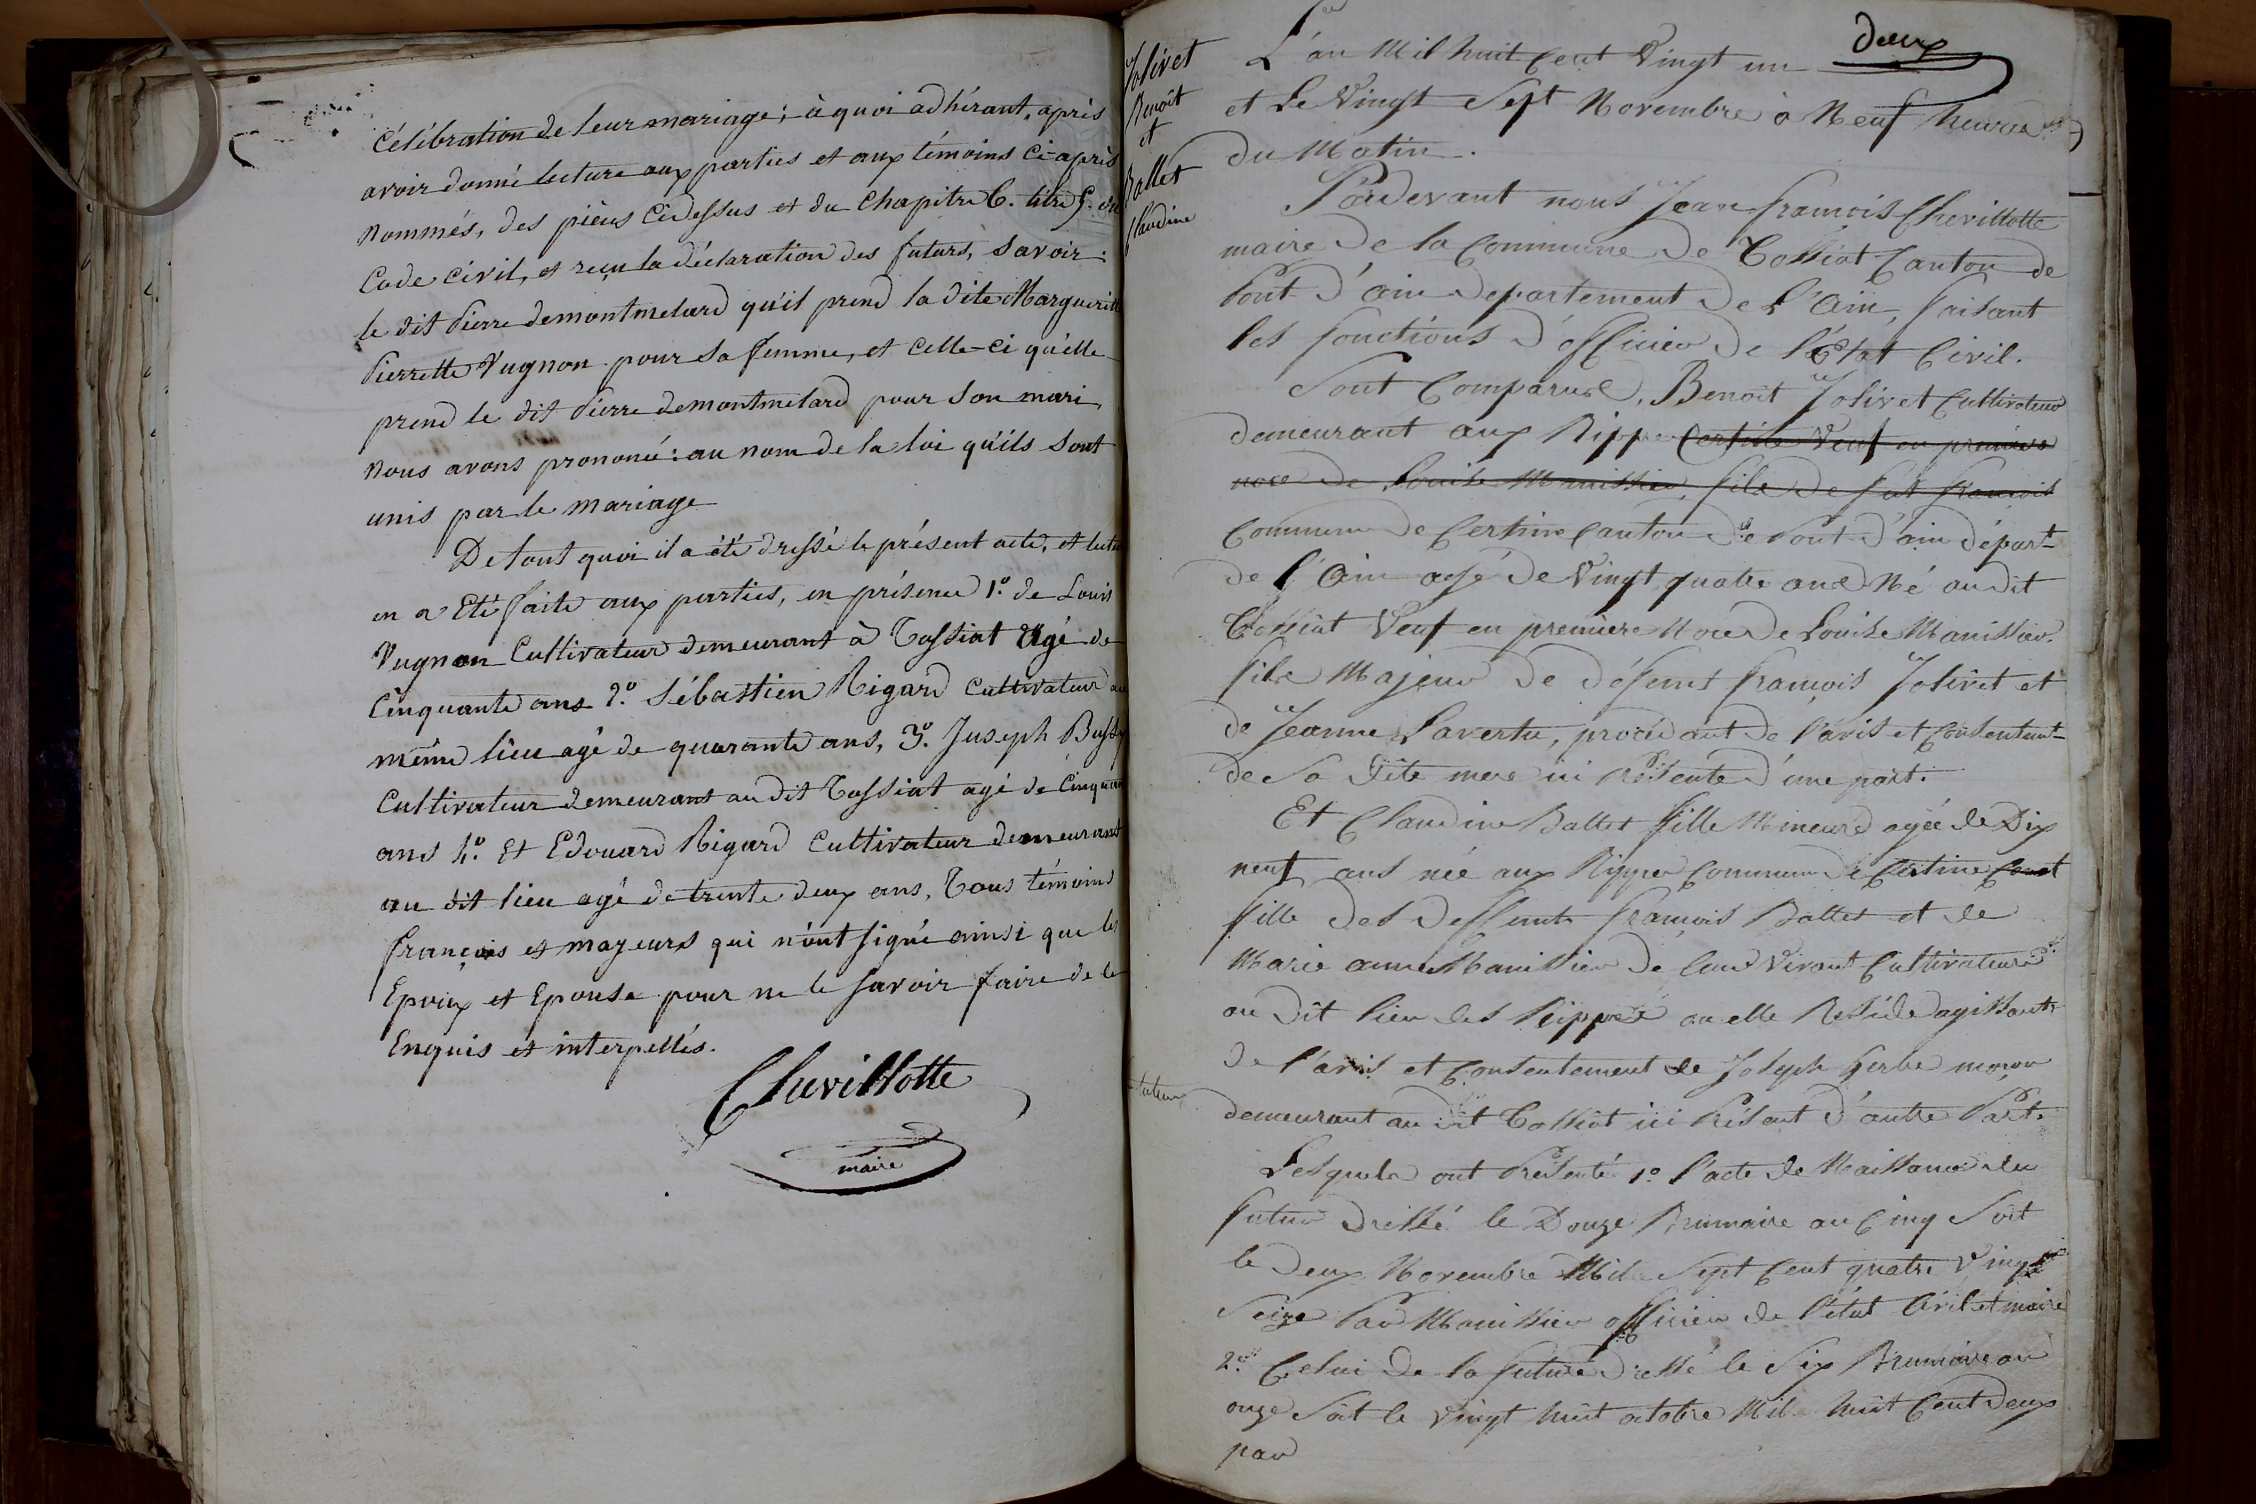 célébration de leur mariage; à quoi adhérant, après
avoir donné lecture aux parties et aux témoins ci-après
nommés, des pièces ci dessus et du chapitre 6. titre 5. du
Code civil, et reçu la déclaration des futurs, savoir:
le dit Pierre demontmelard qu'il prend la dite Marguerite
Pierrette Vugnon pour sa femme, et celle-ci qu'elle
prend le dit Pierre demontmelard pour son mari,
nous avons prononcé: au nom de la loi qu'ils sont
unis par le mariage
De tout quoi il a été dressé le présent acte, et lecture
en a Eté faite aux parties, en présence 1.o de Louis
Vugnon Cultivateur demeurant à Tossiat Agé de
Cinquante ans 2.o Sébastien Rigard Cultivateur au
même lieu agé de quarante ans, 3.o Juseph Bussy
Cultivateur demeurant au dit Tossiat agé de Cinquante
ans 4.o Et Edouard Rigard Cultivateur demeurant
au dit lieu agé de trente deux ans, Tous témoins
français et majeurs qui n'ont signé ainsi que les
Epoux et Epouse pour ne le savoir faire de ce
Enquis et interpellés.
Chevillotte
maire
Jolivet
Benoît
et
Ballet
Claudine
deux
L'an Mil huit Cent Vingt un
et Le Vingt Sept Novembre à Neuf heures
du Matin.
Pardevant nous Jean françois Chevillotte
maire de la Commune de Tossiat Canton de
Pont d'ain departement de L'Ain, faisant
les fonctions d'officier de l'État Civil.
Sont Comparus, Benoit Jolivet Cultivateur
demeurant aux Rippes Certine Veuf en premiere
noce de Louise Manissier, fils de feu françois
Commune de Certine Canton de Pont d'ain départ-
de l'Ain agé de Vingt quatre ans Né au dit
Tossiat Veuf en premiere Noce de Louise Manissier.
fils Majeur de défunt françois Jolivet et
de Jeanne Lavertu, procédant de l'avis et Consentent-
de Sa dite mere ici Présente d'une part.
Et Claudine Ballet fille Mineure agée de Dix
neuf ans née aux Rippes Commune de Certine Canot
fille des deffunts françois Ballet et de
Marie anne Manissier de leur Vivant Cultivateurs
au dit lieu des Rippes ou elle Réside agissant
de l'avis et Consentement de Joseph Herbe moron
tuteur
demeurant au dit Tossiat ici Présent d'autre Part.
Lesquels ont Présenté 1.o l'acte de Naissance du
futur Dressé le Douze Brumaire an Cinq Soit
le Deux Novembre Mil Sept Cent quatre Vingt
Seize Par Manissier officier de l'état Civil et maire
2.o Celui de la future Dressé le Six Brumaire an
onze Soit le Vingt huit octobre Mil huit Cent Deux
par